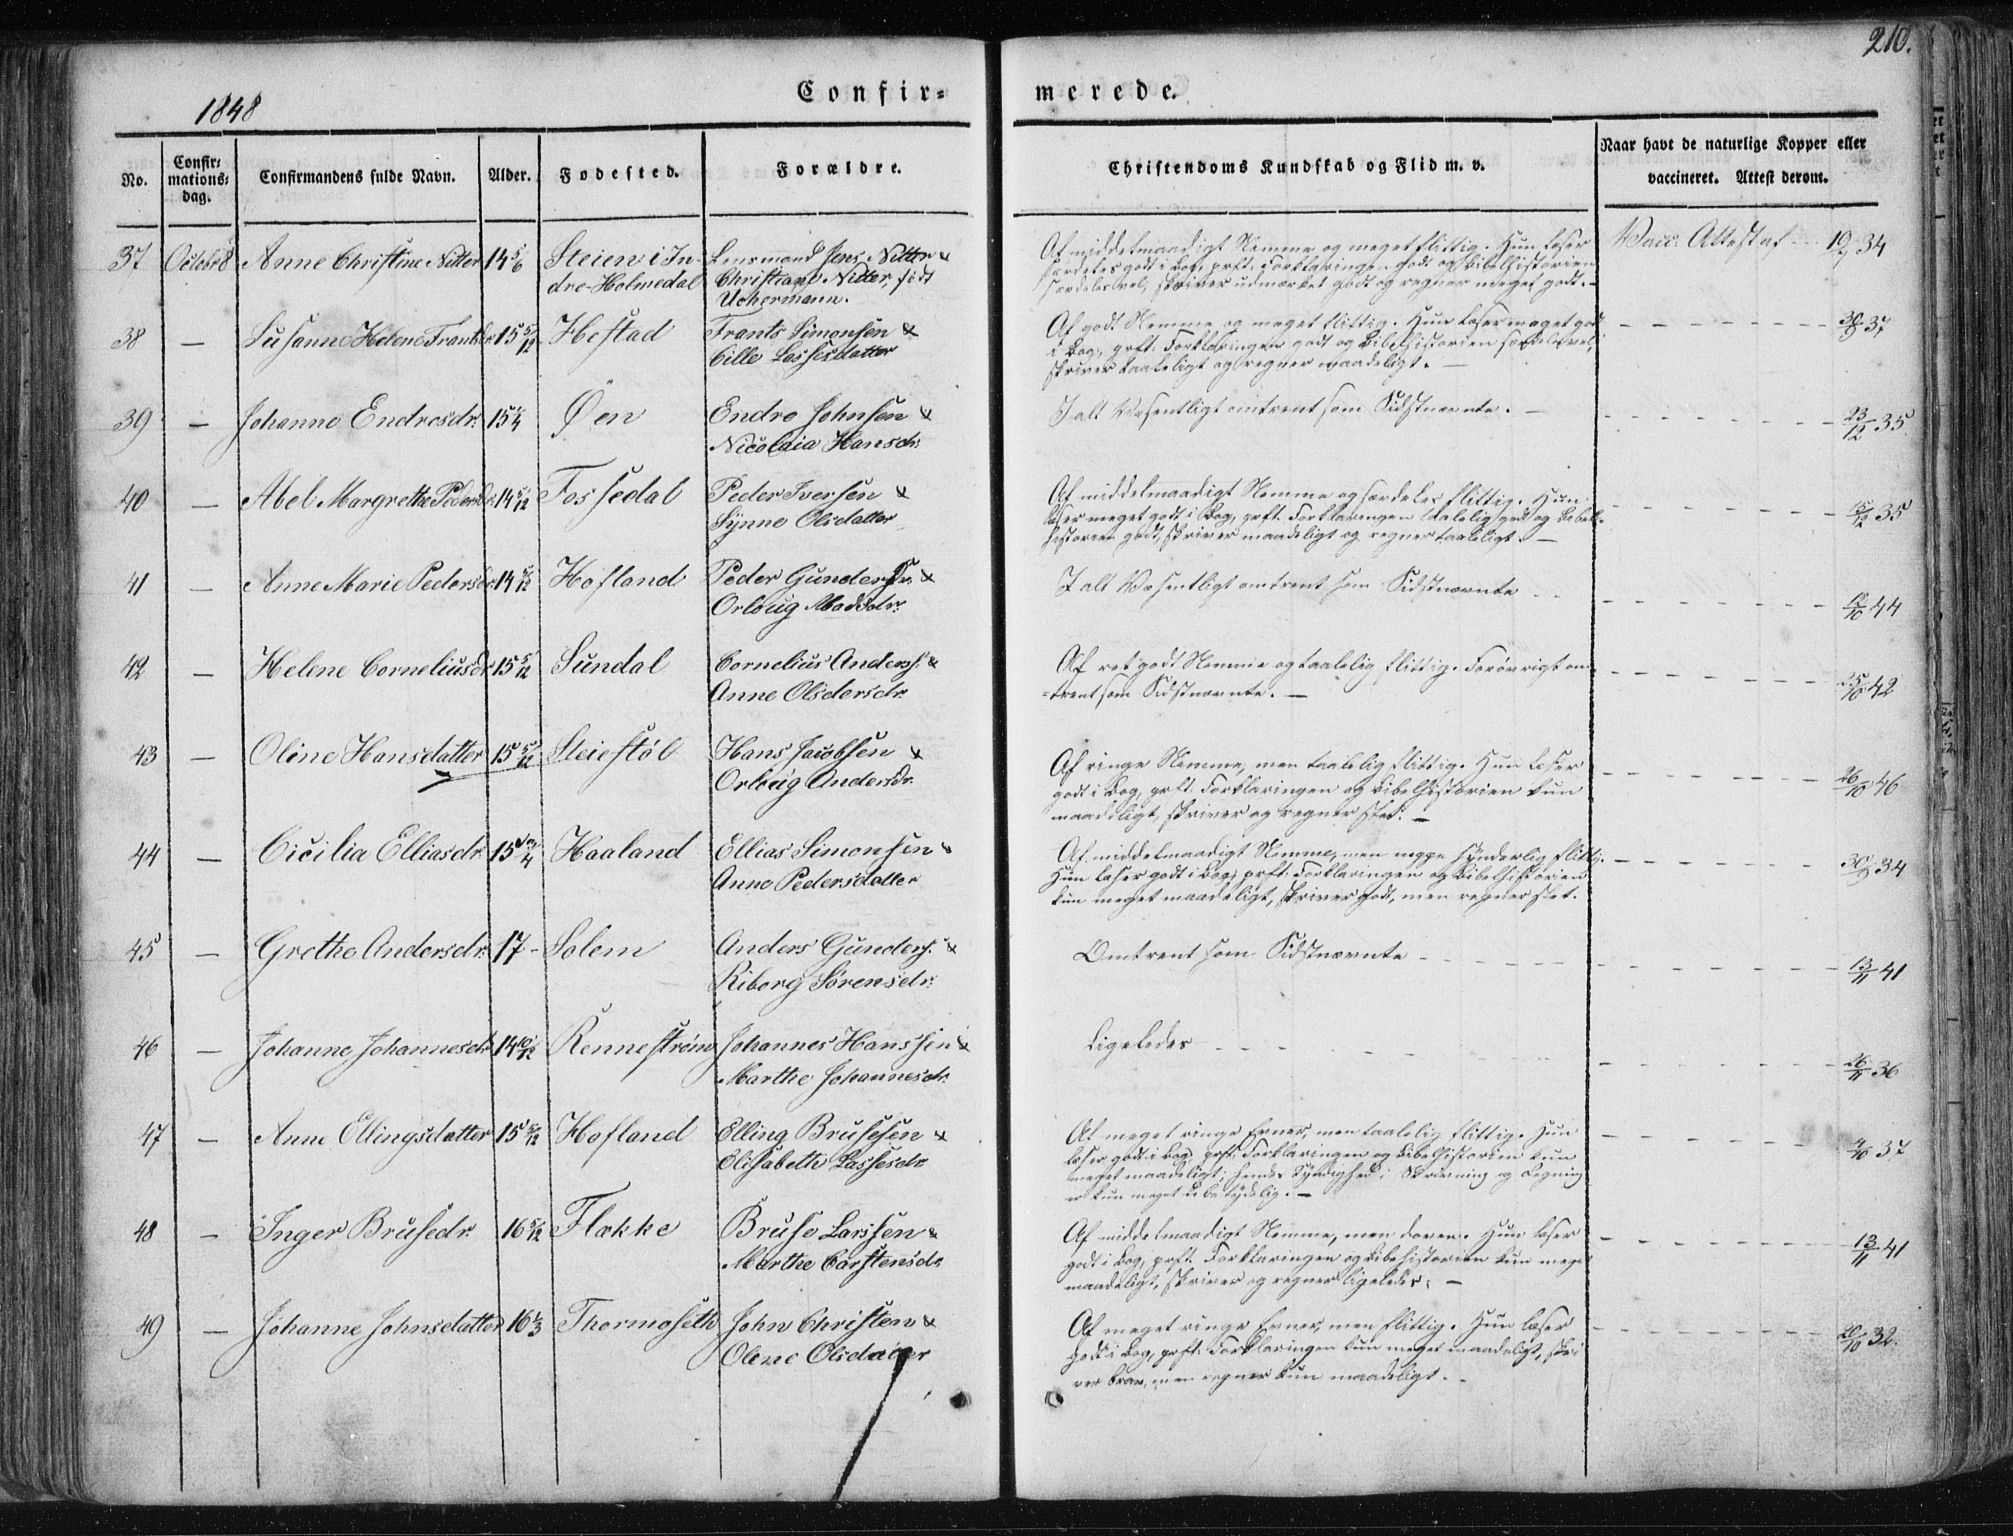 210.
1848
Confir=
merede.
No.
Confir=
mations=
dag.
Confirmandens fulde Navn.
Alder.
Fodested.
Forældre.
Christendoms Kundskab og Flid m. v.
Naar havt de naturlige Kopper eller
vaccineret. Attest derom.
37 Octobr 8 Anne Christine Nitter 14 5/6 Steien i In-
dre-Holmedal
Lensmand Jens Nitter &
Christiane Nitter, født
Uchermann.
Af middelmaadigt Nemme og meget flittig. Hun læser
særdeles godt i Bog, prft: Forklaringen godt og Bibelhistorien
særdeles vel, skriver udmærket godt og regner meget godt. -
Vacc. Attest af 19/9 34
38 - Susanne Helene Frantsdr. 15 5/12 Hestad
Frants Simonsen &
Cille Lassesdatter
Af godt Nemme og meget flittig. Hun læser meget godt
i Bog, prft: Forklaringen godt og Bibelhistorien særdeles vel,
skriver taaleligt og regner maadeligt. -
30/9 37
39 - Johanne Endresdr. 15 1/4 Øen
Endre Johnsen &
Nicolaia Hansdr.
I alt Væsentligt omtrent som Sidstnævnte. -
23/12 35
40 - Abel Margrethe Pedersdr. 14 5/12 Fossedal
Peder Iversen &
Synne Olsdatter
Af middelmaadigt Nemme og særdeles flittig. Hun
læser meget godt i Bog, prft. Forklaringen taalelig godt og Bibel-
historien godt, skriver maadeligt og regner taaleligt. -
15/12 35
41 - Anne Marie Pedersdr. 14 5/12 Hofland
Peder Gunders. &
Orloug Madsdr.
I alt Væsentligt omtrent som Sidstnævnte
12/10 44
42 - Helene Corneliusdr. 15 5/12 Sundal
Cornelius Anders. &
Anne Olsdersdr.
Af ret godt Nemme og taalelig flittig. Forøvrigt om-
=trent som Sidstnævnte. -
25/10 42
43 - Oline Hansdatter 15 5/12 Steiestøl
Hans Jacobsen &
Orloug Andersdr.
Af ringe Nemme, men taalelig flittig. Hun læser
godt i Bog, prft. Forklaringen og Bibelhistorien kun
maadeligt, skriver og regner slet. -
26/10 46
44 - Cicilia Elliasdr. 15 3/4 Haaland
Ellias Simonsen &
Anne Pedersdatter
Af middelmaadigt Nemme, men neppe synderlig flittig.
Hun læser godt i Bog, prft: Forklaringen og Bibelhistorien
kun meget maadeligt, skriver godt, men regner slet.
30/9 34
45 - Grethe Andersdr. 17 - Solem
Anders Gunders. &
Riborg Sörensdr.
Omtrent som Sidstnævnte
13/11 41
46 - Johanne Johannesdr. 14 10/12 Rennestrøm
Johannes Hanssen &
Marthe Johannesdr.
Ligeledes
26/11 36
47 - Anne Ellingsdatter 15 5/12 Hofland
Elling Brusesen &
Elisabeth Lassesdr.
Af meget ringe Evner, men taalelig flittig. Hun
læser godt i Bog, prft. Forklaringen og Bibelhistorien kun
meget maadeligt; hendes Syndighed i Skrivning og Regning
er kun meget ubetydelig. -
4/10 37
48 - Inger Brusedr. 16 5/12 Flække
Bruse Larssen &
Marthe Carstensdr.
Af middelmaadigt Nemme, men doven. Hun læser
godt i Bog, prft. Forklaringen og Bibelhistorien kun meget
maadeligt, skriver og regner ligeledes. -
13/11 41
49 - Johanne Johnsdatter 16 1/3 Thormoseth
John Christen. &
Olene Olsdatter
Af meget ringe Evner, men flittig. Hun læser
godt i Bog, prft. Forklaringen kun meget maadeligt, skri
ver brav, men regner kun maadeligt. -
20/10 32.